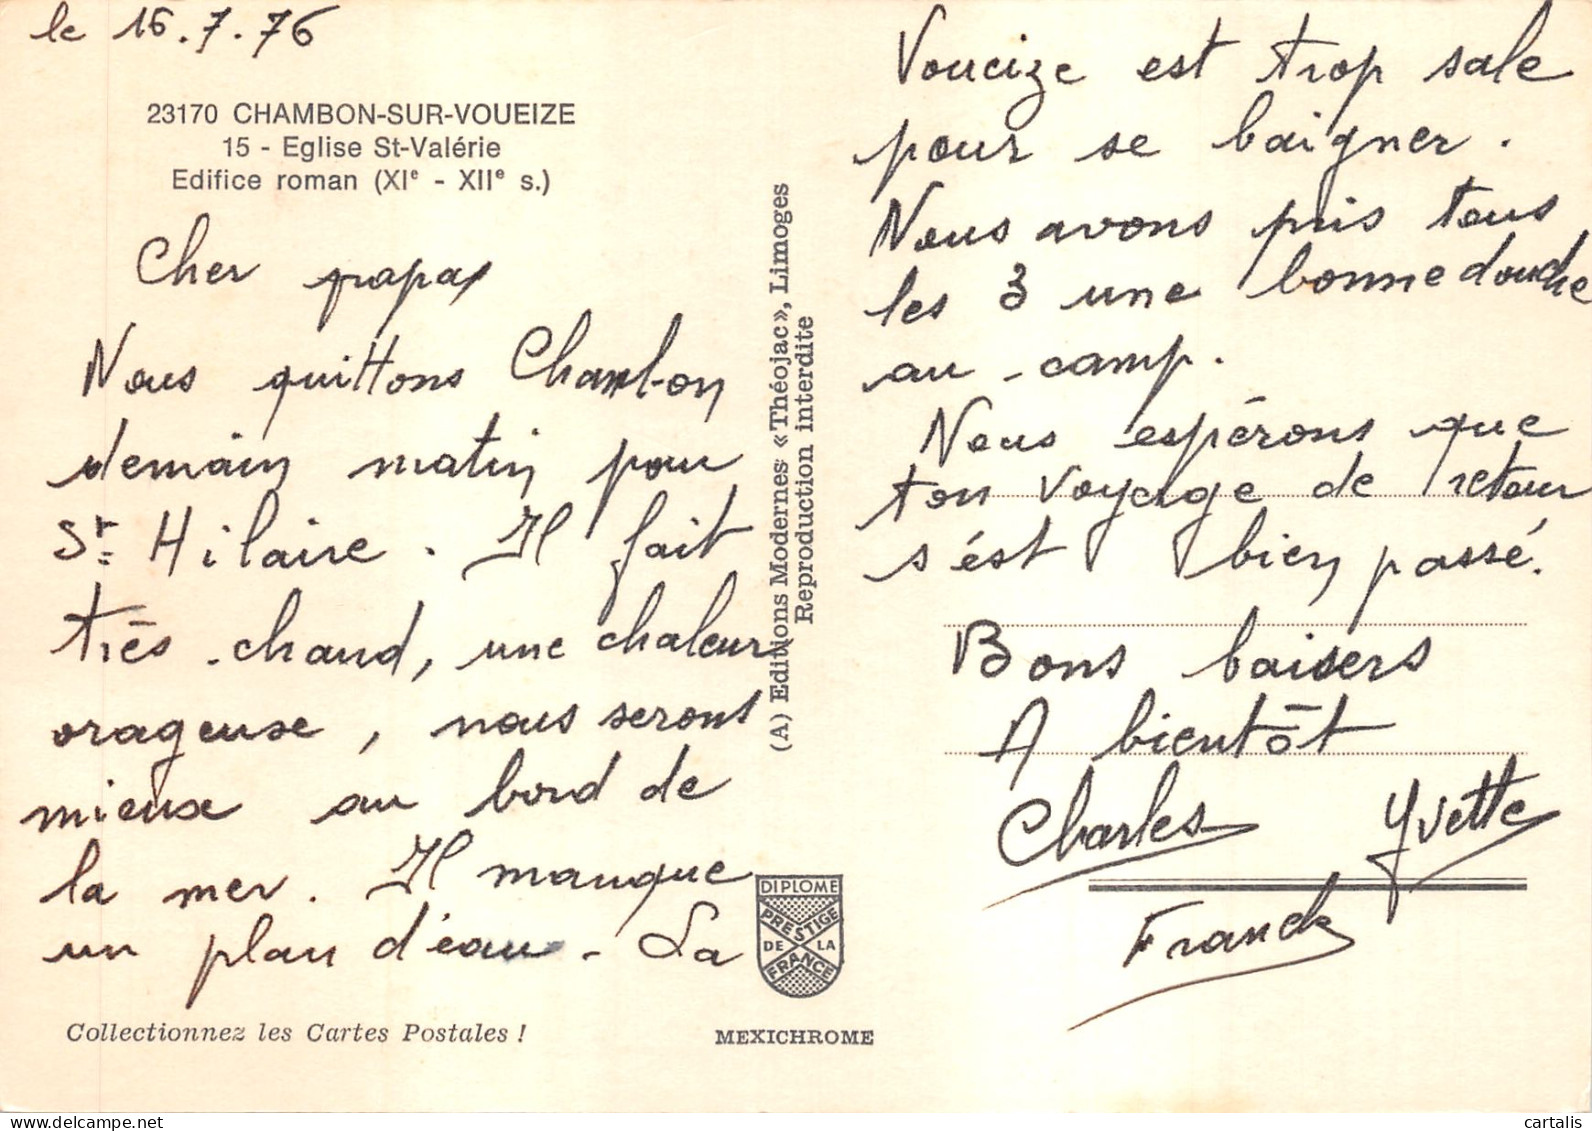 le 16.7.76
23170 CHAMBON-SUR-VOUEIZE
15 - Eglise St-Valérie
Edifice roman (XIe - XIIe s.)
Cher papa
Nous quittons Chambon
demain matin pour
St Hilaire. Il fait
très chaud, une chaleur
orageuse, nous serons
mieux au bord de
la mer. Il manque
un plan d'eau - La
Collectionnez les Cartes Postales !
(A) Editions Modernes «Théojac», Limoges
Reproduction interdite
DIPLOME
PRESTIGE
DE LA
FRANCE
MEXICHROME
Voueize est trop sale
pour se baigner.
Nous avons pris tous
les 3 une bonne douche
au camp.
Nous espérons que
ton voyage de retour
s'ést bien passé.
Bons baisers
A bientôt
Charles Yvette
Franck
cartalis